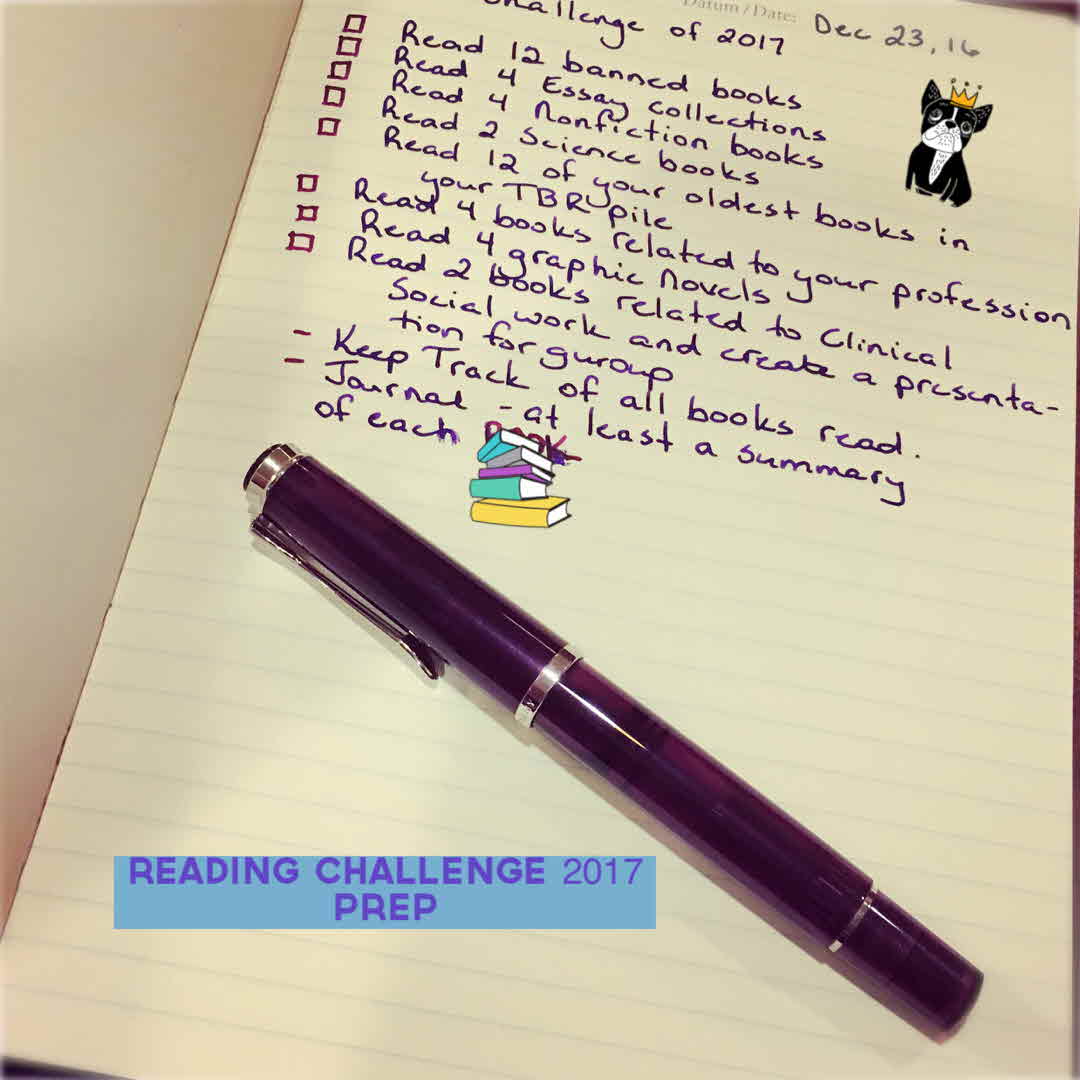 Datum / Date: Dec 23, 16
Challenge of 2017
Read 12 banned books
Read 4 Essay collections
Read 4 Nonfiction books
Read 2 Science books
Read 12 of your oldest books in
your TBR pile
Read 4 books related to your profession
Read 4 graphic Novels
Read 2 books related to Clinical
Social work and create a presenta-
tion for guroup
- Keep Track of all books read.
- Journal - at least a summary
of each Book
READING CHALLENGE 2017
PREP